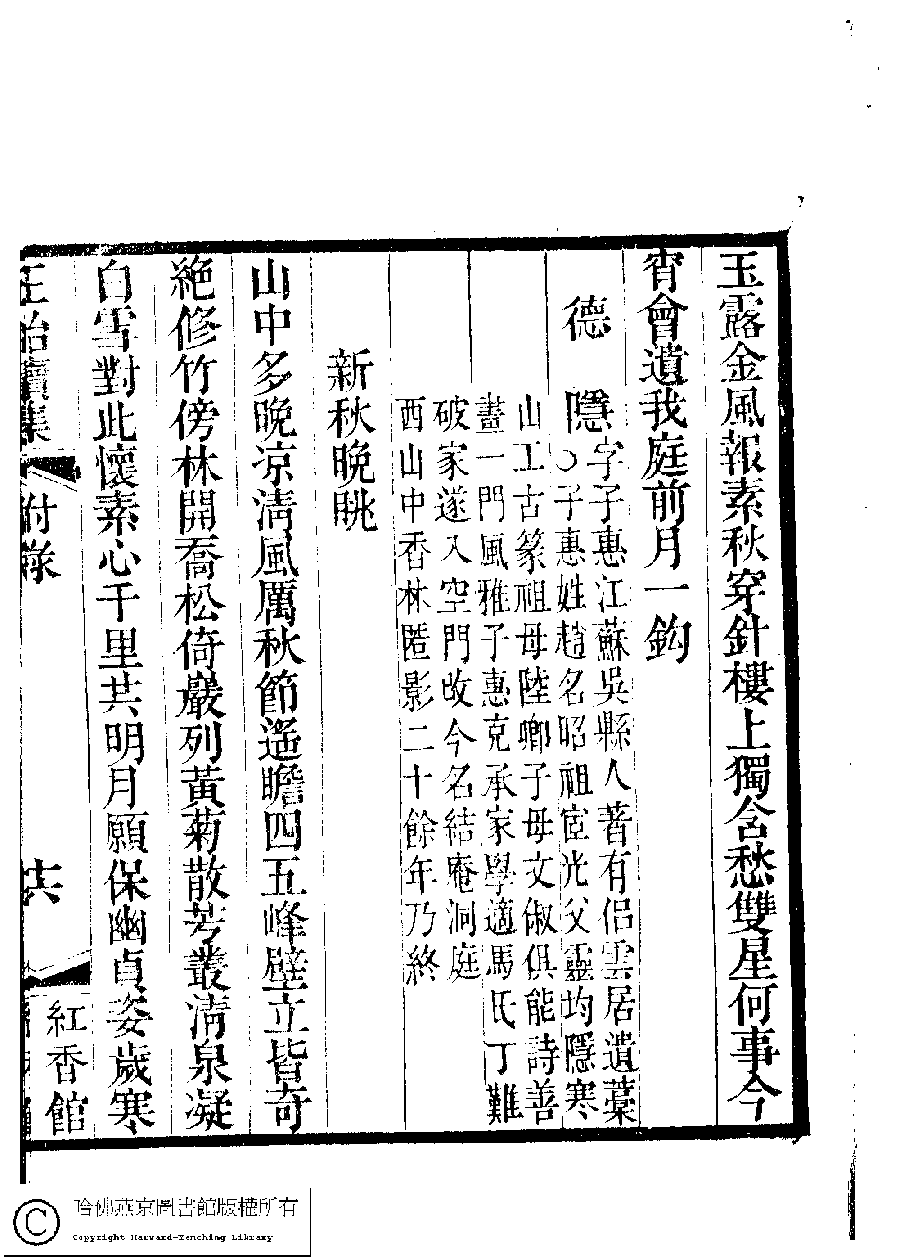 玉露金風報素秋穿針樓上獨含愁雙星何事今
宵會遺我庭前月一鈎
德隱
字子惠江蘇吳縣人著有侶雲居遺藁
○子惠姓趙名昭祖宧光父靈均隱寒
山工古篆祖母陸卿子母文俶俱能詩善
畫一門風雅子惠克承家學適馬氏丁難
破家遂入空門改今名結庵洞庭
西山中香林匿影二十餘年乃終
新秋晚眺
山中多晚凉淸風厲秋節遙瞻四五峰壁立皆奇
絕修竹傍林開喬松倚巖列黃菊散芳叢淸泉凝
白雪對此懷素心千里共明月願保幽貞姿歲寒
集 附錄 十六
紅香館
哈佛燕京圖書館版權所有
Copyright Harvard-Yenching Library